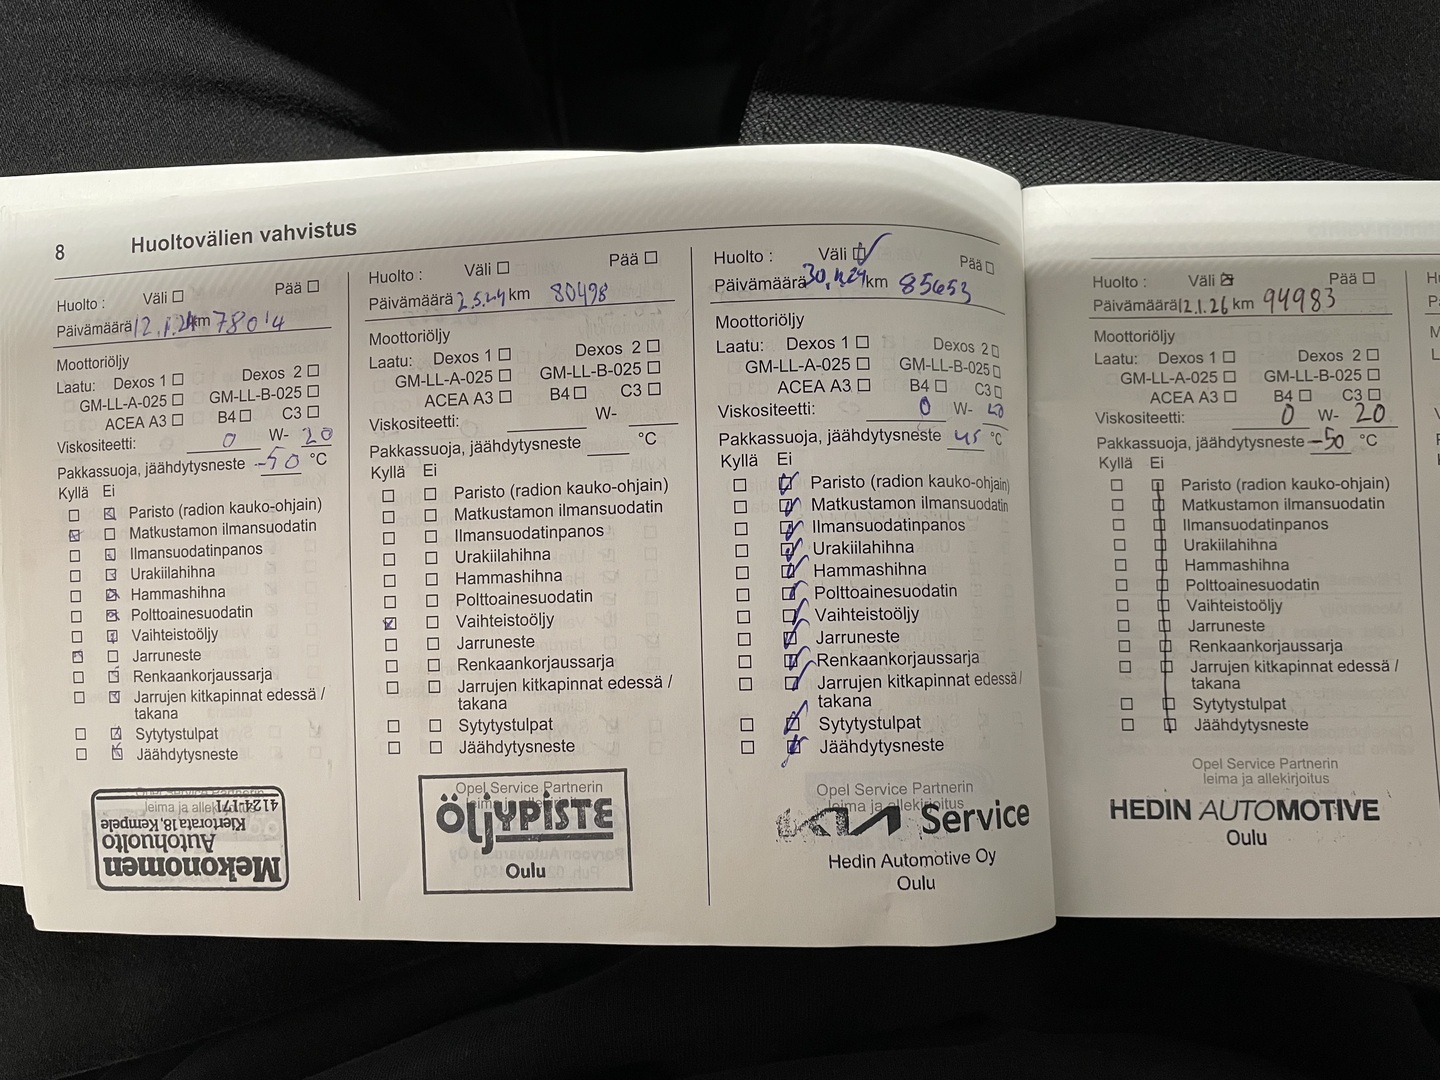 8 Huoltovälien vahvistus
Huolto : Väli Pää
Päivämäärä 12.1.24 km 78014
Moottoriöljy
Laatu: Dexos 1 Dexos 2
GM-LL-A-025 GM-LL-B-025
ACEA A3 B4 C3
Viskositeetti: 0 W- 20
Pakkassuoja, jäähdytysneste -50 °C
Kyllä Ei
Paristo (radion kauko-ohjain)
Matkustamon ilmansuodatin
Ilmansuodatinpanos
Urakiilahihna
Hammashihna
Polttoainesuodatin
Vaihteistoöljy
Jarruneste
Renkaankorjaussarja
Jarrujen kitkapinnat edessä /
takana
Sytytystulpat
Jäähdytysneste
Opel Service Partnerin
leima ja allekirjoitus
Mekonomen
Autohuolto
Kiertorata 18, Kempele
4124171
Huolto : Väli Pää
Päivämäärä 2.5.24 km 80498
Moottoriöljy
Laatu: Dexos 1 Dexos 2
GM-LL-A-025 GM-LL-B-025
ACEA A3 B4 C3
Viskositeetti: W-
Pakkassuoja, jäähdytysneste °C
Kyllä Ei
Paristo (radion kauko-ohjain)
Matkustamon ilmansuodatin
Ilmansuodatinpanos
Urakiilahihna
Hammashihna
Polttoainesuodatin
Vaihteistoöljy
Jarruneste
Renkaankorjaussarja
Jarrujen kitkapinnat edessä /
takana
Sytytystulpat
Jäähdytysneste
Opel Service Partnerin
leima ja allekirjoitus
ÖLJYPISTE
Oulu
Huolto : Väli Pää
Päivämäärä km 85653
Moottoriöljy
Laatu: Dexos 1 Dexos 2
GM-LL-A-025 GM-LL-B-025
ACEA A3 B4 C3
Viskositeetti: 0 W- 20
Pakkassuoja, jäähdytysneste 45 °C
Kyllä Ei
Paristo (radion kauko-ohjain)
Matkustamon ilmansuodatin
Ilmansuodatinpanos
Urakiilahihna
Hammashihna
Polttoainesuodatin
Vaihteistoöljy
Jarruneste
Renkaankorjaussarja
Jarrujen kitkapinnat edessä /
takana
Sytytystulpat
Jäähdytysneste
Opel Service Partnerin
leima ja allekirjoitus
KIA Service
Hedin Automotive Oy
Oulu
Huolto : Väli Pää
Päivämäärä 12.1.26 km 94983
Moottoriöljy
Laatu: Dexos 1 Dexos 2
GM-LL-A-025 GM-LL-B-025
ACEA A3 B4 C3
Viskositeetti: 0 W- 20
Pakkassuoja, jäähdytysneste -50 °C
Kyllä Ei
Paristo (radion kauko-ohjain)
Matkustamon ilmansuodatin
Ilmansuodatinpanos
Urakiilahihna
Hammashihna
Polttoainesuodatin
Vaihteistoöljy
Jarruneste
Renkaankorjaussarja
Jarrujen kitkapinnat edessä /
takana
Sytytystulpat
Jäähdytysneste
Opel Service Partnerin
leima ja allekirjoitus
HEDIN AUTOMOTIVE
Oulu